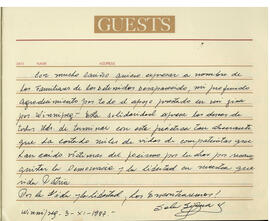 GUESTS
DATE NAME ADDRESS
Con mucho cariño quiero expresar a nombre de
los Familiares de los Detenidos Desaparecidos, un profundo
Agradecimiento por todo el apoyo prestado en mi gira
por Winnipeg. Esta solidaridad expresa los deseos de
todos Uds. de terminar con esta práctica tan
que ha costado miles de vidas de compatriotas que
han caído víctimas del fascismo por luchar por
la Democracia y la libertad en nuestra que
rida Patria
Por la Vida y la libertad, los Encontraremos!
Winnipeg. 3-XI-1987.